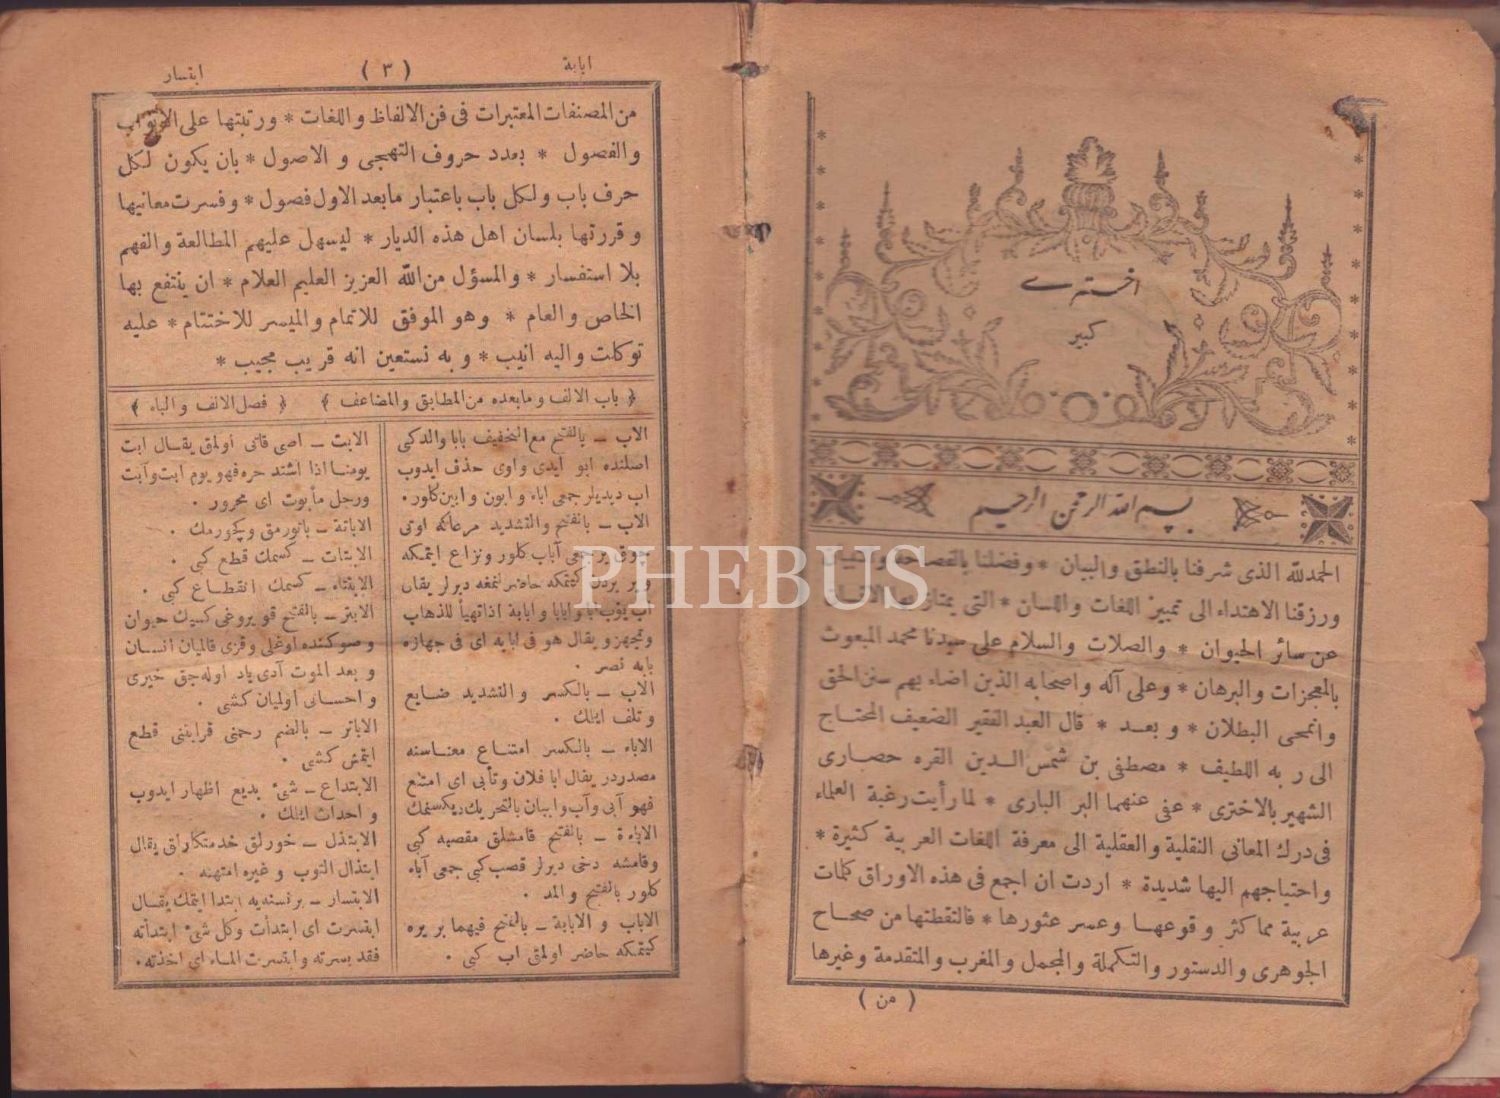 اخترى
كبير
بسم الله الرحمن الرحيم
الحمدلله الذى شرفنا بالنطق والبيان * وفضلنا بالفصاحة
ورزقنا الاهتداء الى تمييز اللغات واللسان * التى يمتاز بها الانسان
عن سائر الحيوان * والصلات والسلام على سيدنا محمد المبعوث
بالمعجزات والبرهان * وعلى آله واصحابه الذين اضاء بهم سنن الحق
وانمحى البطلان * وبعد * قال العبد الفقير الضعيف المحتاج
الى ربه اللطيف * مصطفى بن شمس الدين القره حصارى
الشهير بالاخترى * عفى عنهما البر البارى * لما رأيت رغبة العلماء
فى درك المعانى النقلية والعقلية الى معرفة اللغات العربية كثيرة *
واحتياجهم اليها شديدة * اردت ان اجمع فى هذه الاوراق كلمات
عربية مما كثر وقوعها وعسر عثورها * فالتقطتها من صحاح
الجوهرى والدستور والتكملة والمجمل والمغرب والمتقدمة وغيرها
( من )
ابابة
( ٣ )
ابتسار
من المصنفات المعتبرات فى فن الالفاظ واللغات * ورتبتها على الابواب
والفصول * بعدد حروف التهجى و الاصول * بان يكون لكل
حرف باب ولكل باب باعتبار مابعد الاول فصول * وفسرت معانيها
وقررتها بلسان اهل هذه الديار * ليسهل عليهم المطالعة والفهم
بلا استفسار * والمسؤل من الله العزيز العليم العلام * ان ينتفع بها
الخاص والعام * وهو الموفق للاتمام والميسر للاختتام * عليه
توكلت واليه انيب * وبه نستعين انه قريب مجيب *
﴿ باب الالف ومابعده من المطابق والمضاعف ﴾ ﴿ فصل الالف والباء ﴾
الاب – بالفتح مع التخفيف بابا والدكبى
اصلنده ابو ايدى واوى حذف ايدوب
اب ديديلر جمعى اباء وابون وابين كلور .
الاب – بالفتح والتشديد مرعانكه اوتى
چوق جمعى آباب كلور ونزاع ايتمكه
كيتمكه حاضر لنمغه ديرلر يقال
اب يؤب ابا وابابا وابابة اذا تهيأ للذهاب
وتجهز ويقال هو فى ابابه اى فى جهازه
بابه نصر .
الاب – بالكسر والتشديد ضايع
وتلف ايلمك .
الاباء – بالكسر امتناع معناسنه
مصدردر يقال ابا فلان وتأبى اى امتنع
فهو آبى وآب وابيان بالتحريك ديكسنمك
الاباءة – بالفتح قامشلق مقصبه كبى
وقامشه دخى ديرلر قصب كبى جمعى آباء
كلور بالفتح والمد .
الاباب والابابة – بالفتح فيهما بر يره
كيتمكه حاضر اولمق اب كبى .
الابت – اصى قاتى اولمق يقال ابت
يومنا اذا اشتد حره فهو يوم ابت وآبت
ورجل مأبوت اى محرور .
الاباتة – ياتورمق وكچورمك .
الابتات – كسمك قطع كبى .
الابتتاء – كسمك انقطاع كبى .
الابتر – بالفتح قويروغى كسيك حيوان
وصوكنده اوغلى وقزى قالميان انسان
وبعد الموت آدى ياد اوله جق خيرى
واحسانى اولميان كشى .
الاباتر – بالضم رحمنى قرابتنى قطع
ايتمش كشى .
الابتداع – شئ بديع اظهار ايدوب
واحداث ايلمك .
الابتذال – خورلق خدمتكارلق يقال
ابتذال الثوب وغيره امتهنه .
الابتسار – برنسنه يه ابتدا ايتمك يقال
ابتسرت اى ابتدأت وكل شئ ابتدأته
فقد بسرته وابتسرت الماء اى اخذته .
PHEBUS